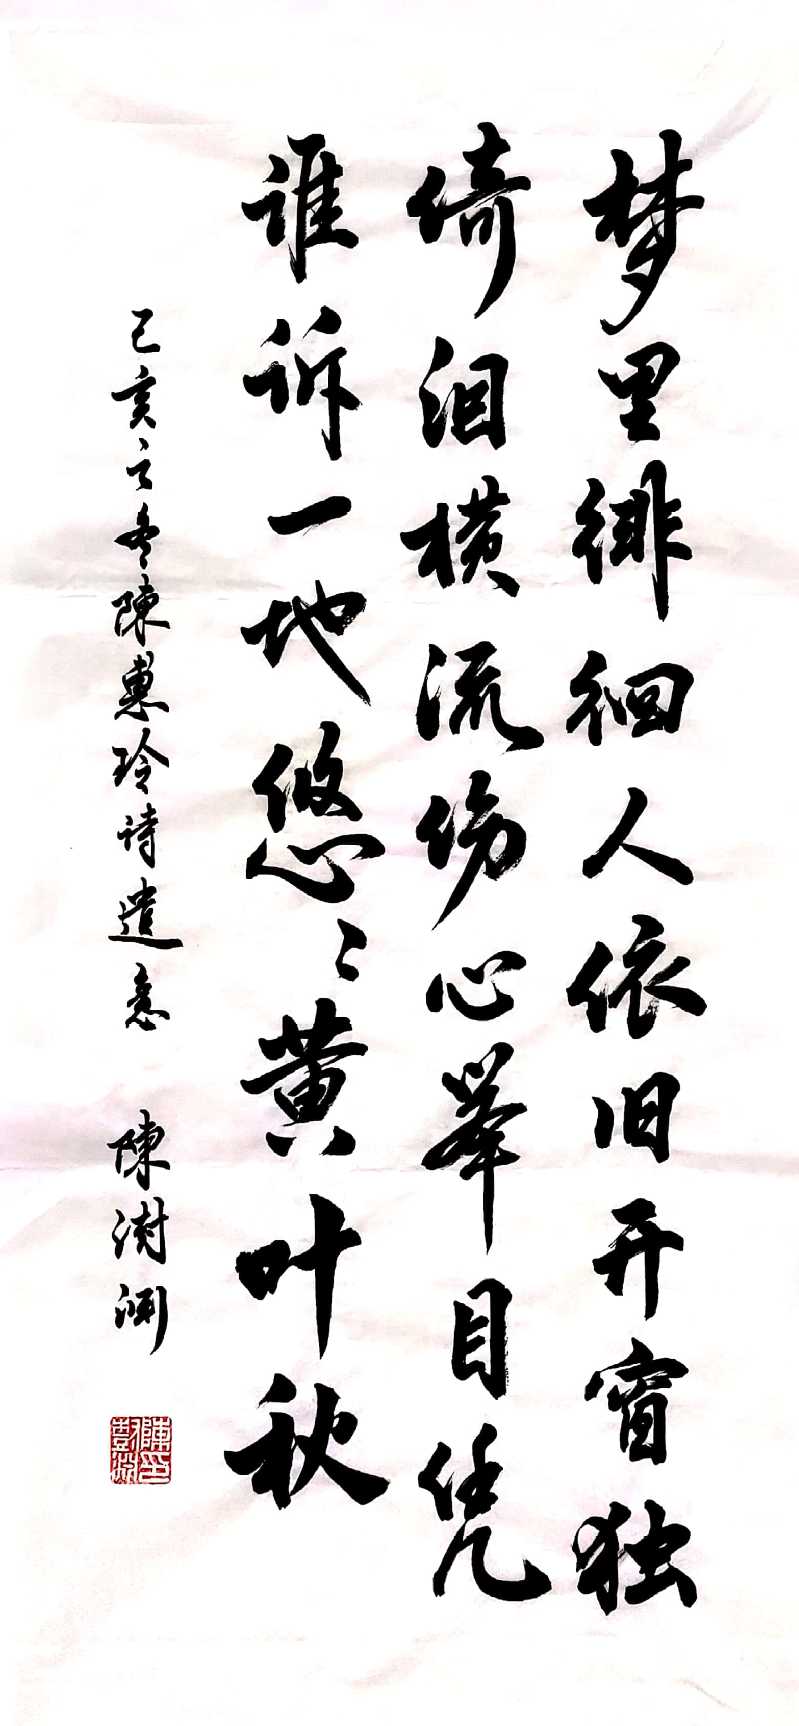 梦里徘徊人依旧开窗独
倚泪横流伤心举目凭
谁诉一地悠々黄叶秋
己亥之冬陳惠玲诗遣意
陳澍渊